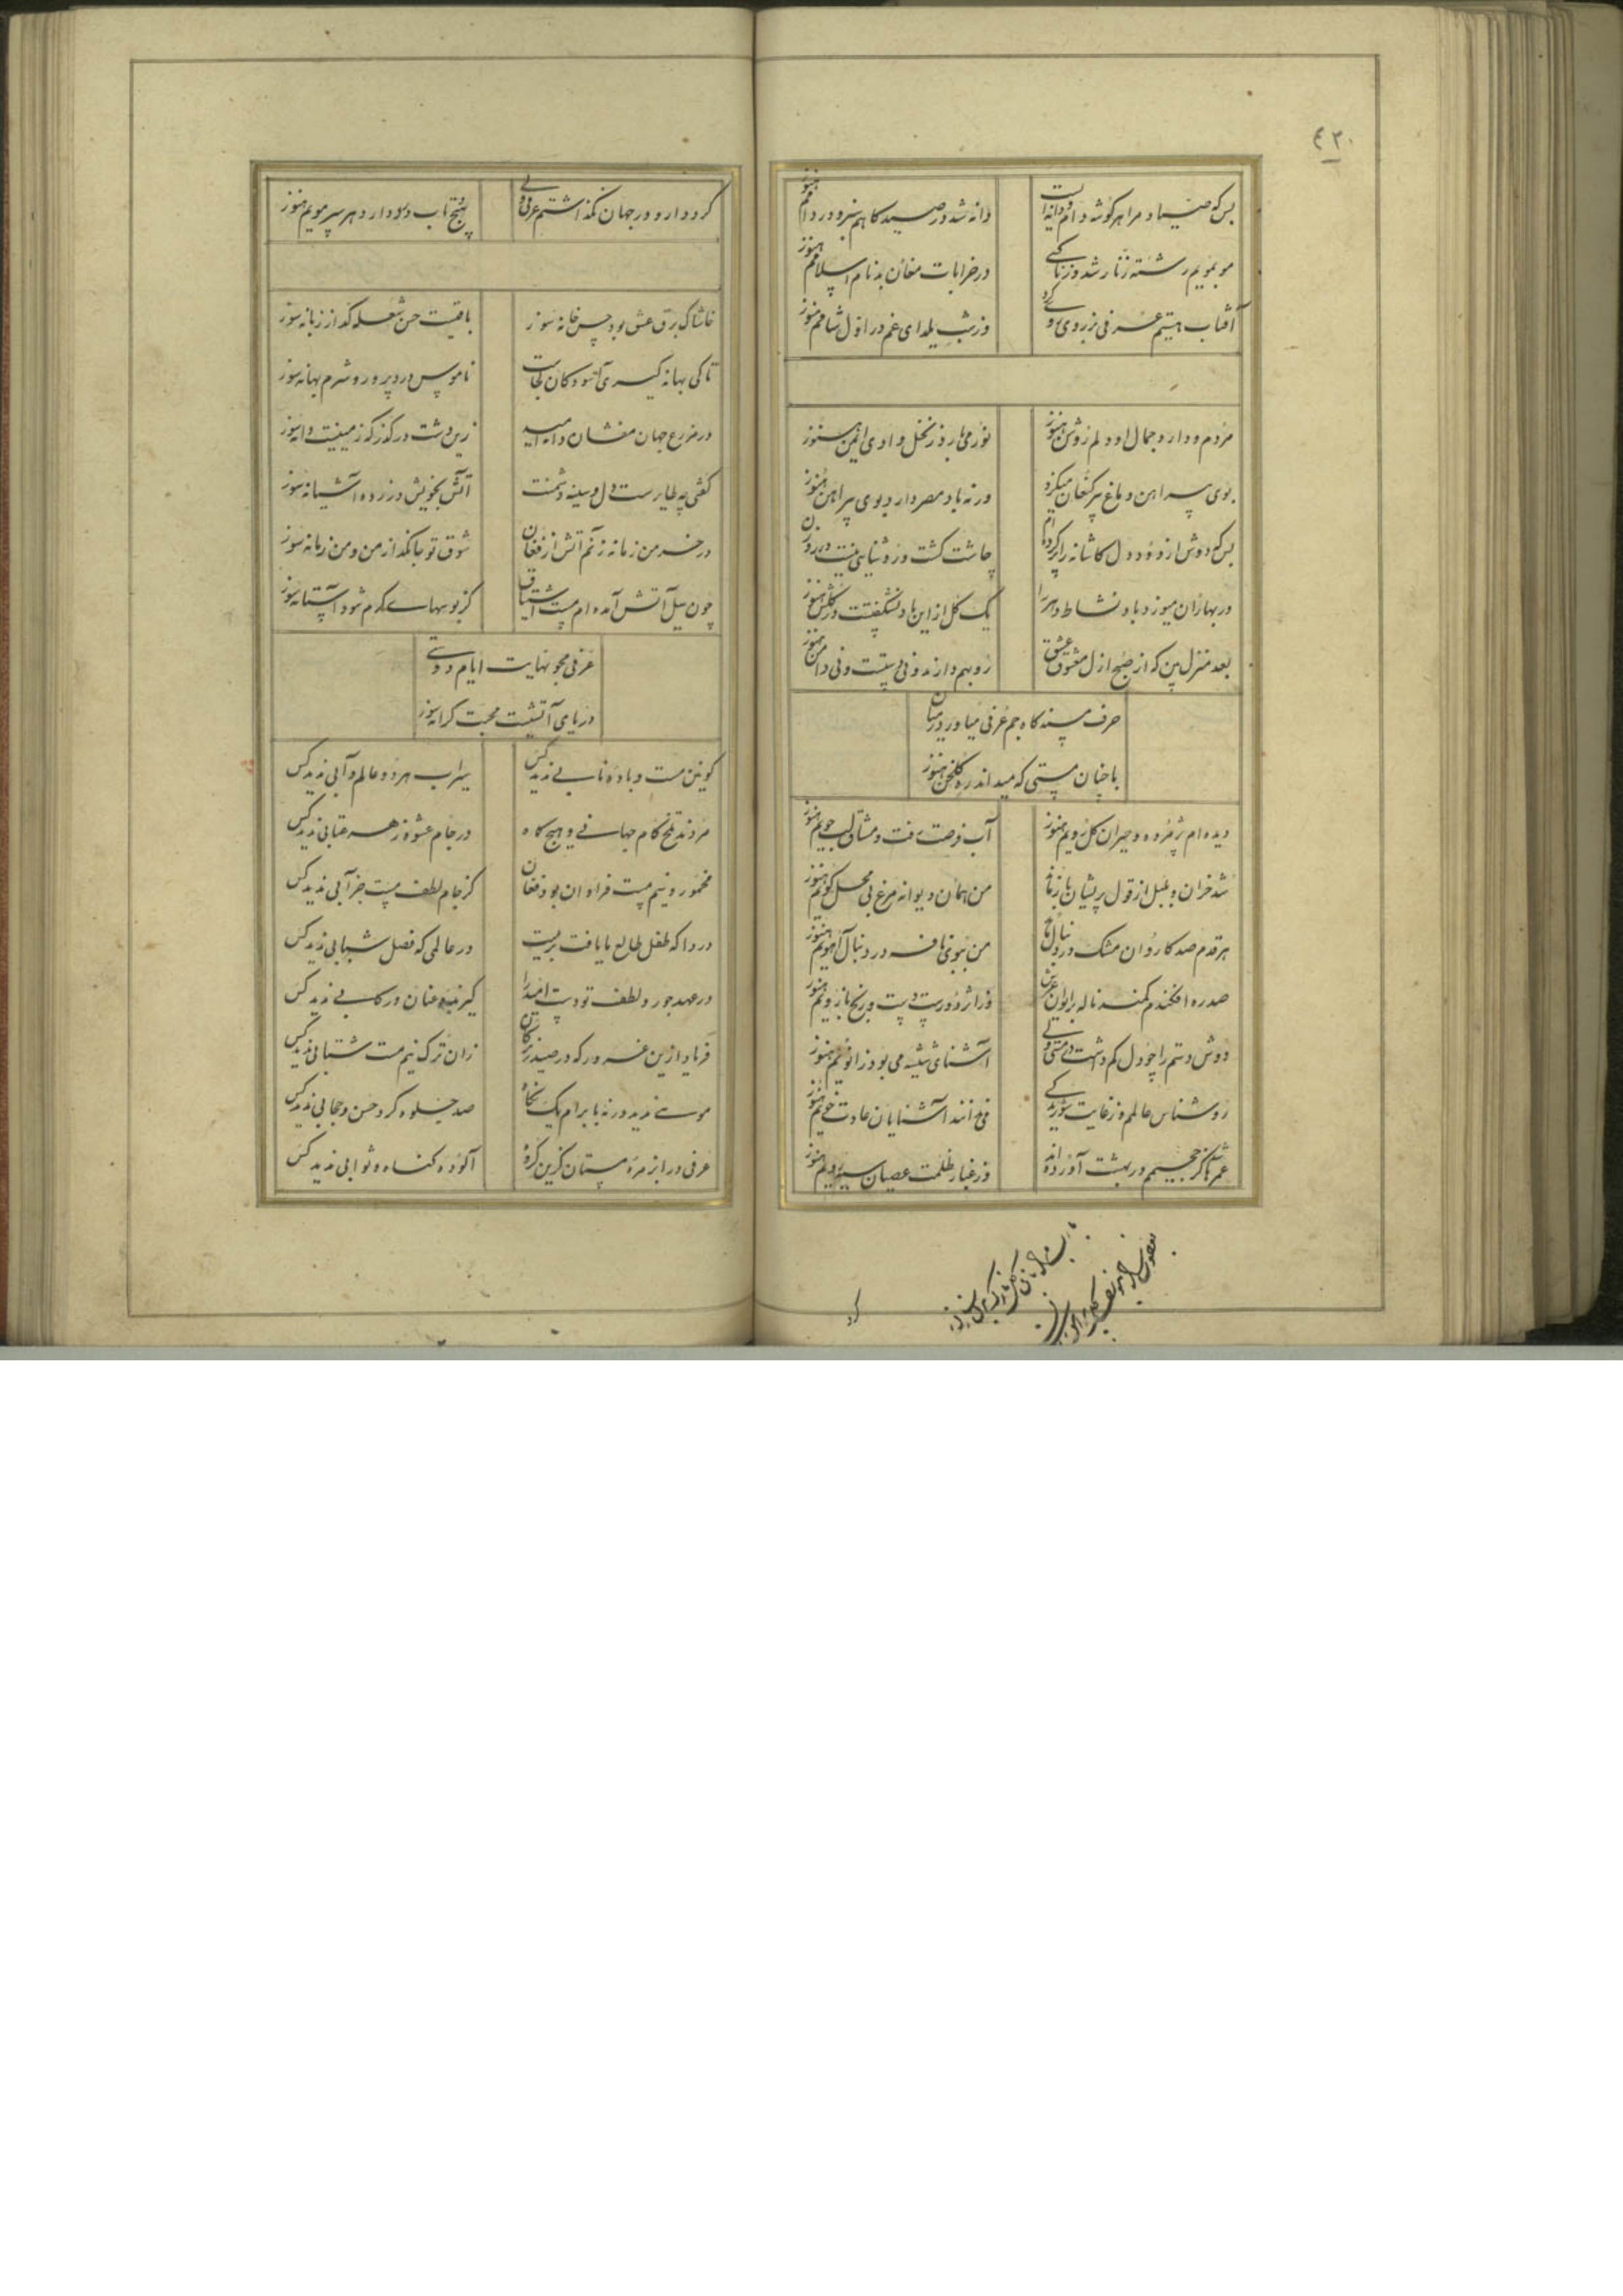 ٤٢٠
بس که صیاد مرا هر گوشه دام و دانه است
دانه شد در صیدگاهم سبز و در دامم هنوز
مو بمویم رشته زنار شد وز ناکسی
در خرابات مغان بدنام اسلامم هنوز
آفتاب هستیم عرفی بزردی روی کرد
وز شب یلدای غم در اول شامم هنوز
مردم و دارد جمال او دلم روشن هنوز
نور می بارد ز نخل وادی ایمن هنوز
بوی پیراهن دماغ پیر کنعان میگزد
ورنه باد مصر دارد بوی پیراهن هنوز
بس که دوش از دود دل کاشانه را پر کرده ام
چاشت کشت و روشنایی نیست در روزن
در بهاران میوزد باد نشاط و دهر را
یک گل از این باد نشگفتست در گلشن هنوز
بعد منزل بین که از صبح ازل معشوق و عشق
رو بهم دارند و نی دستست و نی دامن هنوز
حرف مسندگاه جم عرفی میاور در میان
با چنان مستی که میداند ره گلخن هنوز
دیده ام پژمرده و حیران گل رویم هنوز
آب فرصت رفت و مشتاق لب جویم هنوز
شد خزان و بلبل از قول پریشان باز ماند
من همان دیوانه مرغ بی محل گویم هنوز
هر قدم صد کاروان مشک در دنبالها
من ببوی نافه در دنبال آهویم هنوز
صد ره افکندم کمند ناله بر ایوان عرش
وز اثر دورست دست و رنج بازویم هنوز
دوش دستم را چو دل کم داشت در مستی ولی
آشنای شیشه می بود زانویم هنوز
روشناس عالمم وز غایت شوریدگی
می دانند آشنایان عادت خویم هنوز
عمرها کز جحیمم در بهشت آورده اند
وز غبار ظلمت عصیان سیه رویم هنوز
کرد
گرد دارو در جهان نگذاشتم عرفی ولی
پیچ تاب درد دارد هر سر مویم هنوز
خاشاک برق عشق بود جسم خانه سوز
باقیست حسن شعله گداز زبانه سوز
تا کی بهانه گیری آسودگان کجاست
ناموس درد پرور و شرم بهانه سوز
در مزرع جهان مفشان دانه امید
زین دشت درگذر که زمینست دانه سوز
کفتی چه طایر ست دل و سینه دشمنت
آتش بخویش در زده آشیانه سوز
در خرمن زمانه زنم آتش از فغان
شوق تو جا نگداز من و من زمانه سوز
چون سیل آتش آمده ام مست اشتیاق
کز بوسهای گرم شود آستانه سوز
عرفی مجو نهایت ایام دوستی
دریای آتشست محبت کرانه سوز
کونین مست و باده نابی ندید کس
سیراب هر دو عالم و آبی ندید کس
مردند تلخ کام جهانی و هیچ گاه
در جام عشوه زهر عتابی ندید کس
مخمور و نیم مست فراوان بود فغان
کز جام لطف مست خرابی ندید کس
دردا که طفل طالع ما یافت تربیت
در عالمی که فصل شبابی ندید کس
در عهد جور و لطف تو دست امید را
گیرنده عنان و رکابی ندید کس
فریاد ازین غرور که در صید زیرکان
زان ترک نیم مست شتابی ندید کس
موسی ندید ورنه بابرام یک نگاه
صد جلوه کرد حسن و حجابی ندید کس
عرفی در ابر مزه مستان گزین کزو
آلوده گناه و ثوابی ندید کس